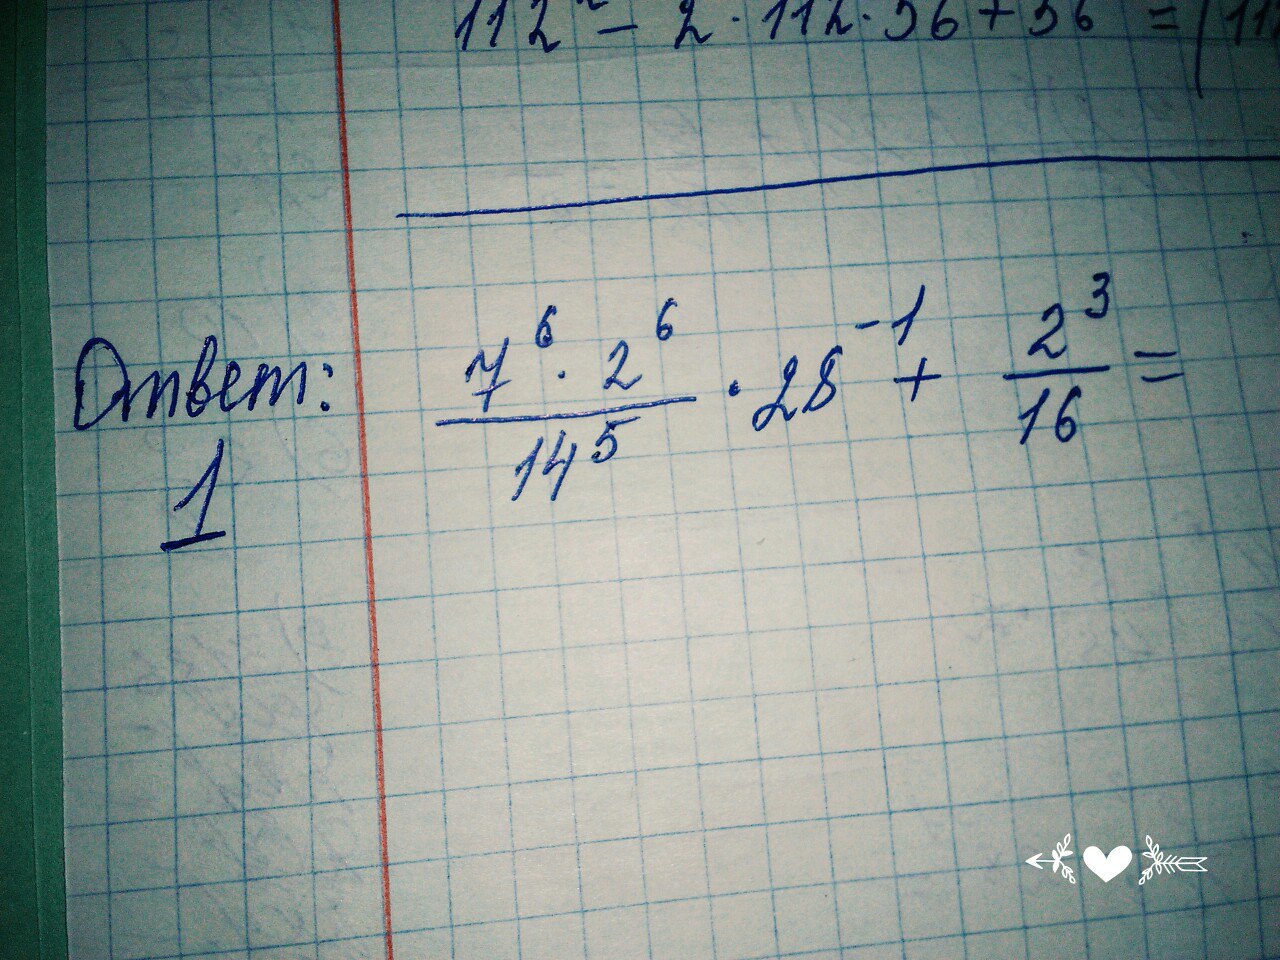 112² - 2 · 112 · 56 + 56 = (11
Ответ: 7⁶ · 2⁶ / 14⁵ · 28⁻¹ + 2³ / 16 =
1